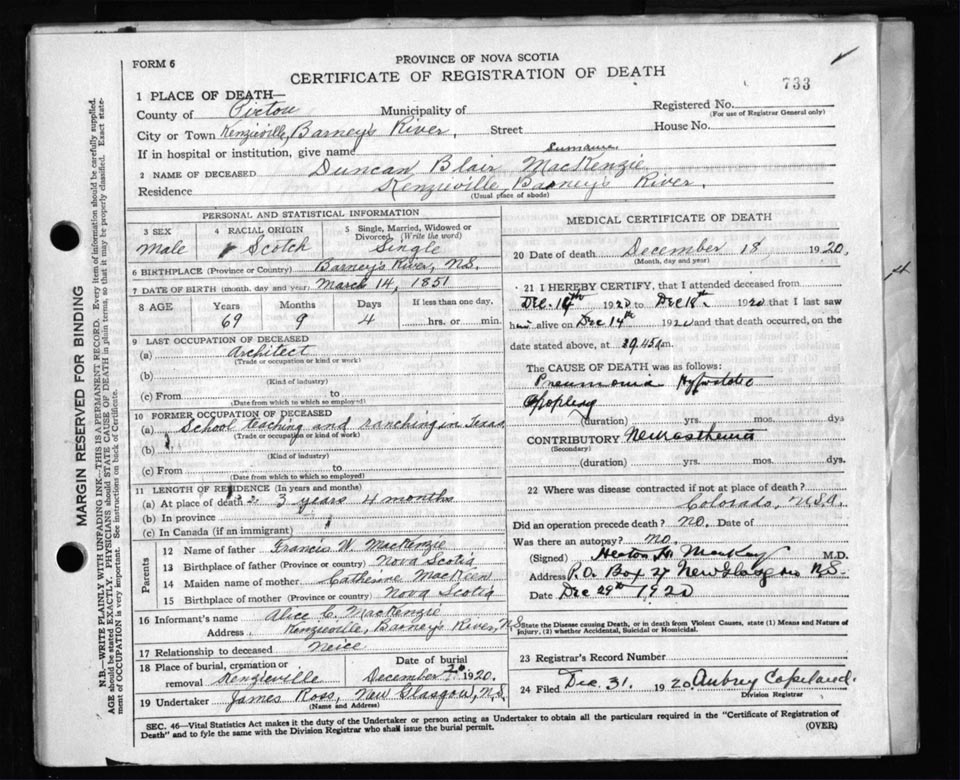 FORM 6
PROVINCE OF NOVA SCOTIA
CERTIFICATE OF REGISTRATION OF DEATH
733
1 PLACE OF DEATH—
County of Pictou Municipality of Registered No.
(For use of Registrar General only)
City or Town Kenzieville, Barney's River, Street House No.
If in hospital or institution, give name
Surname
2 NAME OF DECEASED Duncan Blair MacKenzie
Residence Kenzieville, Barney's River.
(Usual place of abode)
PERSONAL AND STATISTICAL INFORMATION
3 SEX
Male
4 RACIAL ORIGIN
Scotch
5 Single, Married, Widowed or
Divorced, (Write the word)
Single
6 BIRTHPLACE (Province or Country) Barney's River, N.S.
7 DATE OF BIRTH (month, day and year) March 14, 1851
8 AGE Years Months Days If less than one day,
69 9 4 hrs. or min.
9 LAST OCCUPATION OF DECEASED
(a) Architect
(Trade or occupation or kind or work)
(b)
(Kind of industry)
(c) From to
(Date from which to which so employed)
10 FORMER OCCUPATION OF DECEASED
(a) School teaching and ranching in Texas
(Trade or occupation or kind of work)
(b)
(Kind of industry)
(c) From to
(Date from which to which so employed)
11 LENGTH OF RESIDENCE (In years and months)
(a) At place of death 3 years 4 months
(b) In province
(c) In Canada (if an immigrant)
Parents
12 Name of father Francis W. MacKenzie
13 Birthplace of father (Province or country) Nova Scotia
14 Maiden name of mother Catherine MacKeen
15 Birthplace of mother (Province or country) Nova Scotia
16 Informant's name Alice C. MacKenzie
Address Kenzieville, Barney's River, N.S.
17 Relationship to deceased Neice
18 Place of burial, cremation or
removal Kenzieville
Date of burial
December 20 1920.
19 Undertaker James Ross, New Glasgow, N.S.
(Name and Address)
MEDICAL CERTIFICATE OF DEATH
20 Date of death December 18, 1920.
(Month, day and year)
21 I HEREBY CERTIFY, that I attended deceased from
Dec. 1920 to Dec 18th. 1920 that I last saw
him alive on Dec 17th 1920 and that death occurred, on the
date stated above, at m.
The CAUSE OF DEATH was as follows:
Pneumonia Hypostatic
(duration) yrs. mos. dys
CONTRIBUTORY Neurasthenia
(Secondary)
(duration) yrs. mos. dys.
22 Where was disease contracted if not at place of death?
Colorado, U.S.A.
Did an operation precede death? No. Date of
Was there an autopsy? No.
(Signed) MacKay M.D.
Address P.O. Box 27 New Glasgow N.S.
Date Dec 29th 1920
State the Disease causing Death, or in death from Violent Causes, state (1) Means and Nature of
Injury, (2) whether Accidental, Suicidal or Homicidal.
23 Registrar's Record Number
24 Filed Dec. 31 1920. Aubrey Copeland.
Division Registrar
SEC. 46—Vital Statistics Act makes it the duty of the Undertaker or person acting as Undertaker to obtain all the particulars required in the "Certificate of Registration of
Death" and to fyle the same with the Division Registrar who shall issue the burial permit.
(OVER)
MARGIN RESERVED FOR BINDING
N.B.—WRITE PLAINLY WITH UNFADING INK—THIS IS A PERMANENT RECORD. Every item of information should be carefully supplied.
AGE should be stated EXACTLY. PHYSICIANS should STATE CAUSE OF DEATH in plain terms, so that it may be properly classified. Exact state-
ment of OCCUPATION is very important. See instructions on back of Certificate.